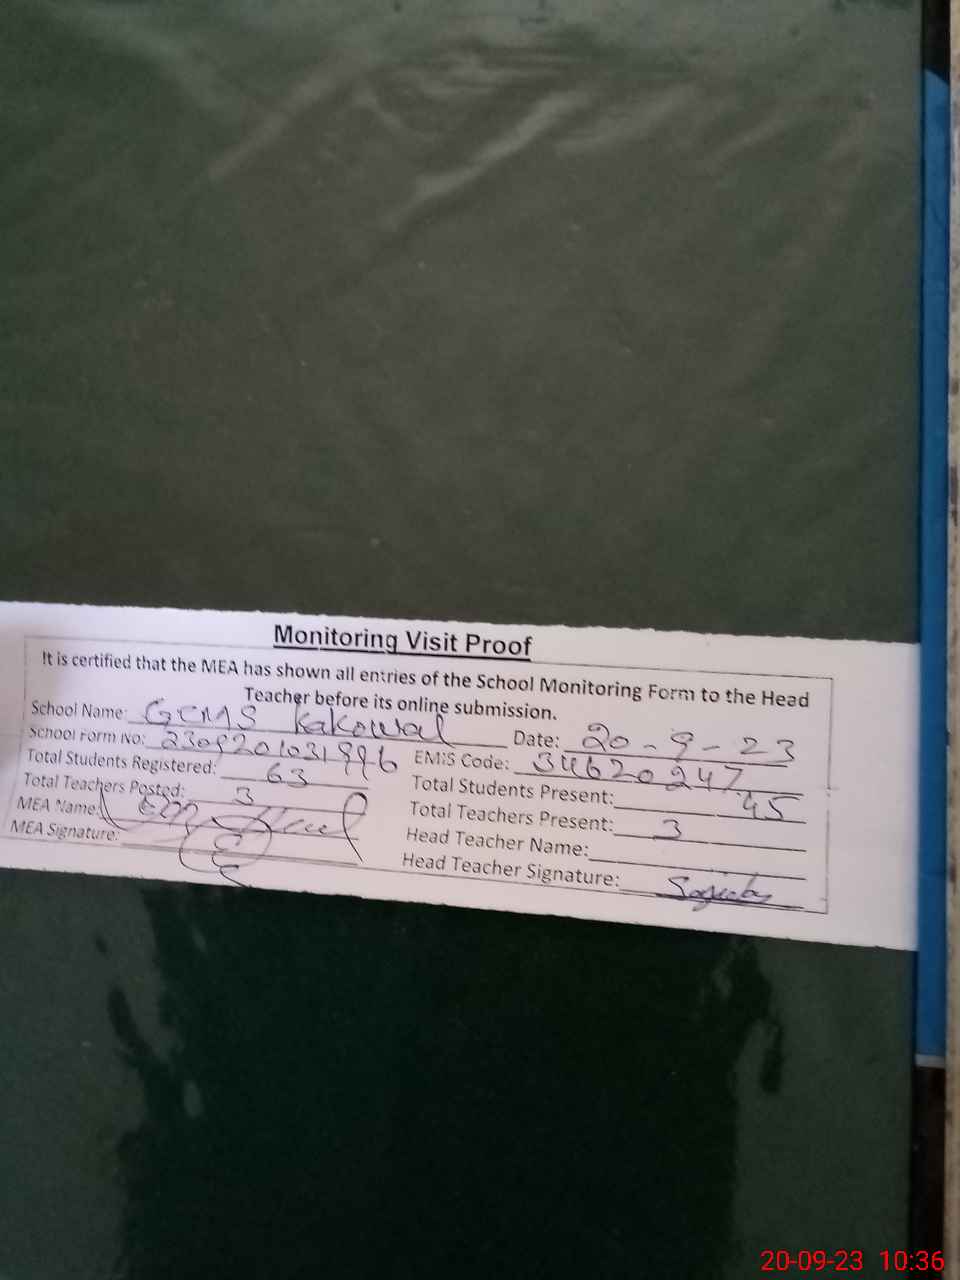 Monitoring Visit Proof
It is certified that the MEA has shown all entries of the School Monitoring Form to the Head
Teacher before its online submission.
School Name: GEMS Kakowal Date: 20-9-23
School Form No: 2309201031996 EMIS Code: 34620247
Total Students Registered: 63 Total Students Present: 45
Total Teachers Posted: 3 Total Teachers Present: 3
MEA Name: Head Teacher Name:
MEA Signature: Head Teacher Signature:
20-09-23 10:36